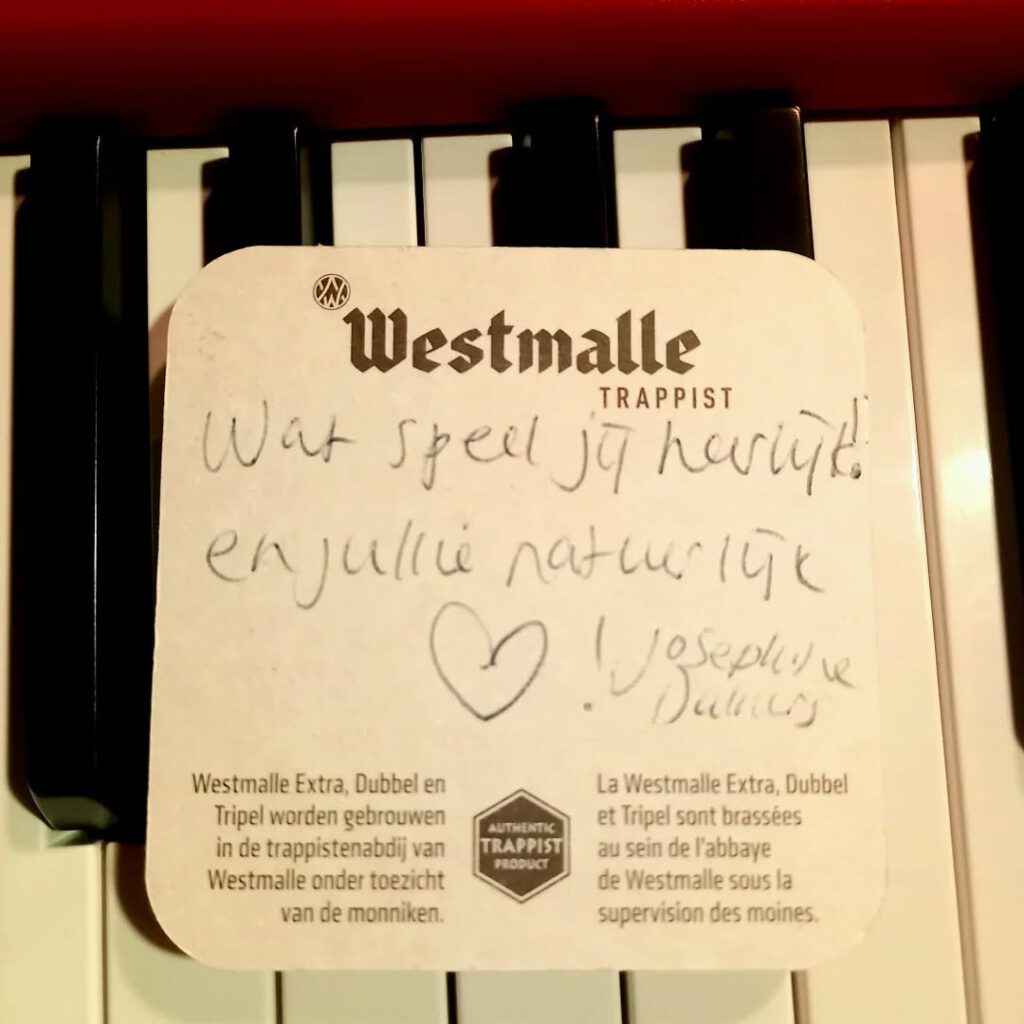 Westmalle
TRAPPIST
Wat speel jij heerlijk!
en jullie natuurlijk
! Josephine
Westmalle Extra, Dubbel en
Tripel worden gebrouwen
in de trappistenabdij van
Westmalle onder toezicht
van de monniken.
AUTHENTIC
TRAPPIST
PRODUCT
La Westmalle Extra, Dubbel
et Tripel sont brassées
au sein de l'abbaye
de Westmalle sous la
supervision des moines.